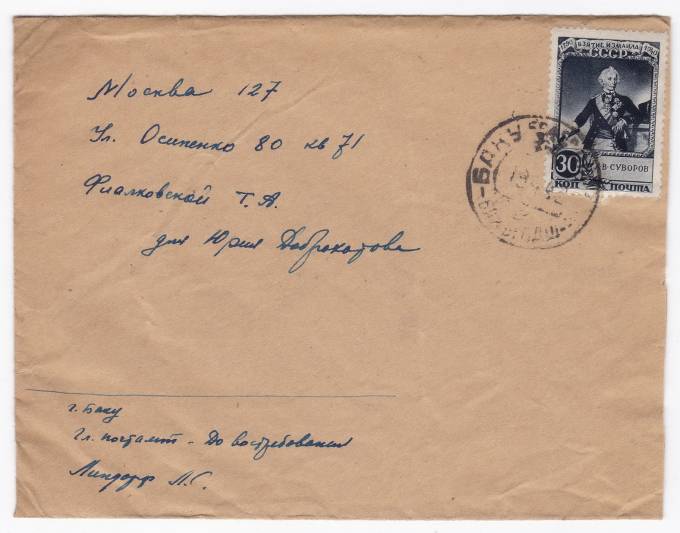 1790 ВЗЯТИЕ ИЗМАИЛА 1940
СССР
В·СУВОРОВ
30
КОП ПОЧТА
БАКУ
Москва 127
Ул. Осипенко 80 кв 71
Фиалковской Т. А.
для Юрия Доброхотова
г. Баку
Гл. почтамт - До востребования
Линдорф Л. С.